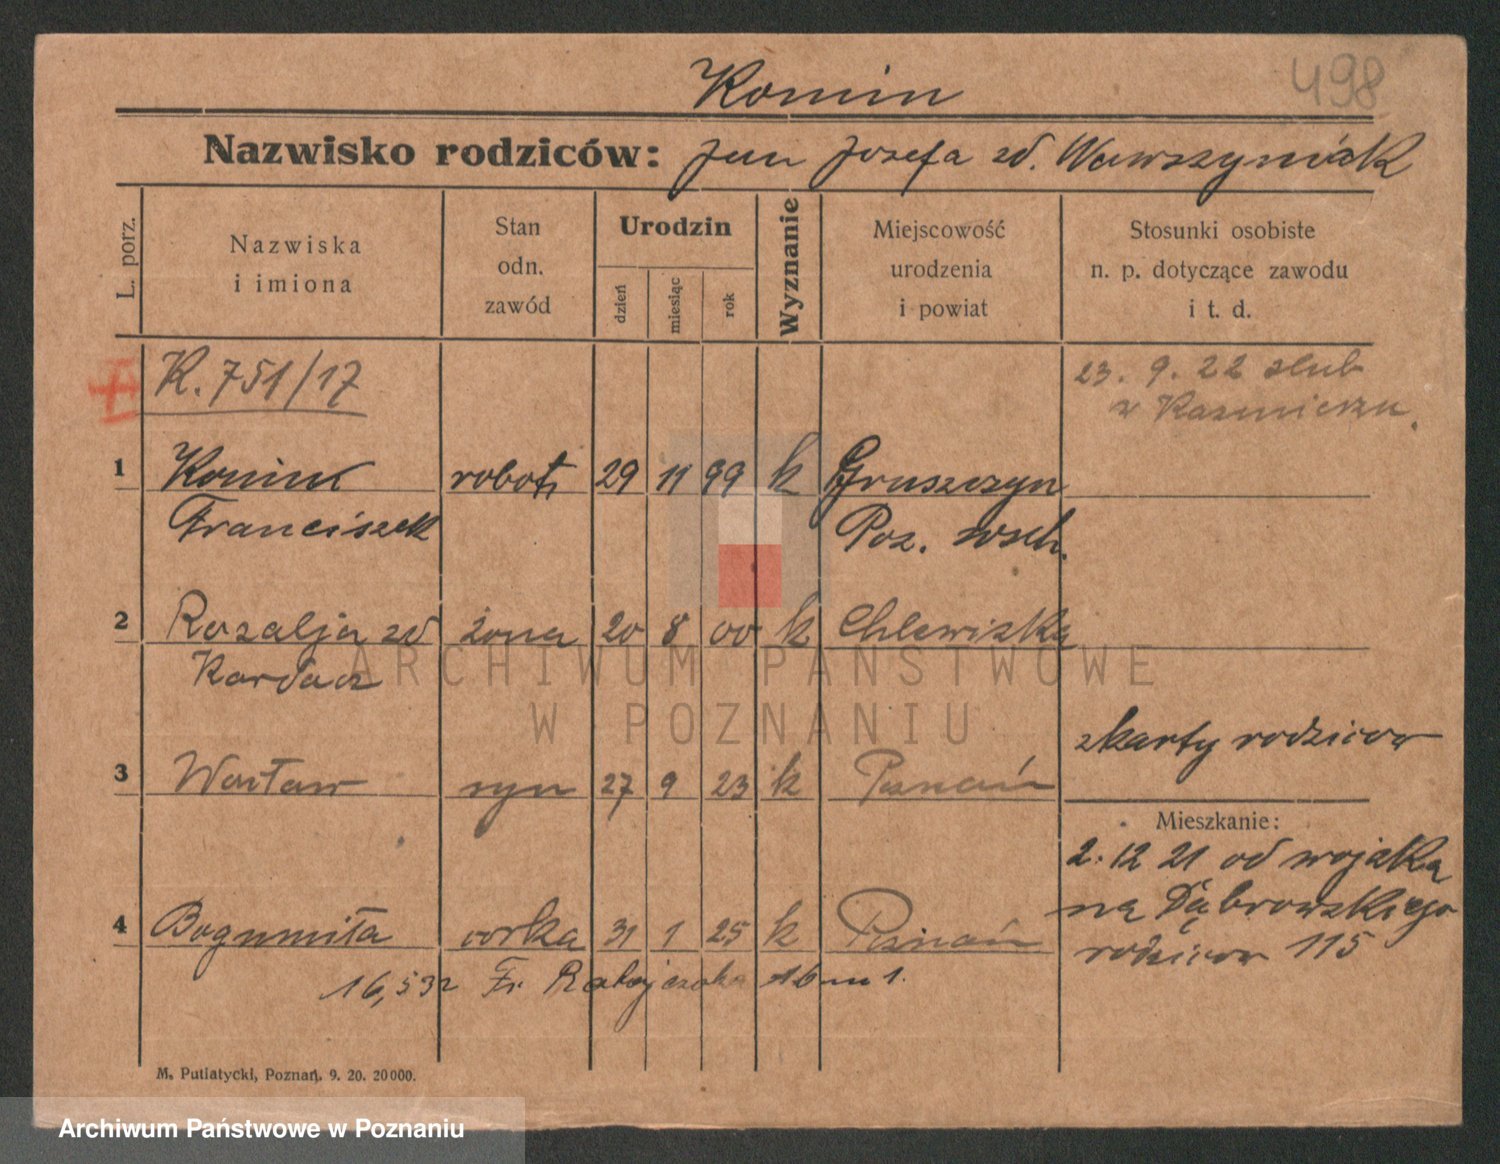 Komin
498
Nazwisko rodziców: Jan Józefa zd. Wawrzyniak
L. porz.
Nazwiska
i imiona
Stan
odn.
zawód
Urodzin
dzień
miesiąc
rok
Wyznanie
Miejscowość
urodzenia
i powiat
Stosunki osobiste
n. p. dotyczące zawodu
i t. d.
K. 751/17
23. 9. 22 slub
w Kazmierzu.
1 Komin robotn 29 11 99 k Gruszczyn
Franciszek Poz. wsch.
2 Rozalja zd żona 20 8 00 k Chlewiska
Kardacz
z karty rodziców
3 Wacław syn 27 9 23 k Poznań
Mieszkanie:
2. 12 21 od wojska
na Dąbrowskiego
rodziców 115
4 Bogumiła córka 31 1 25 k Poznań
16,532 Fr. Ratajczaka 16 m 1.
M. Putiatycki, Poznań. 9. 20. 20000.
ARCHIWUM PAŃSTWOWE
W POZNANIU
Archiwum Państwowe w Poznaniu